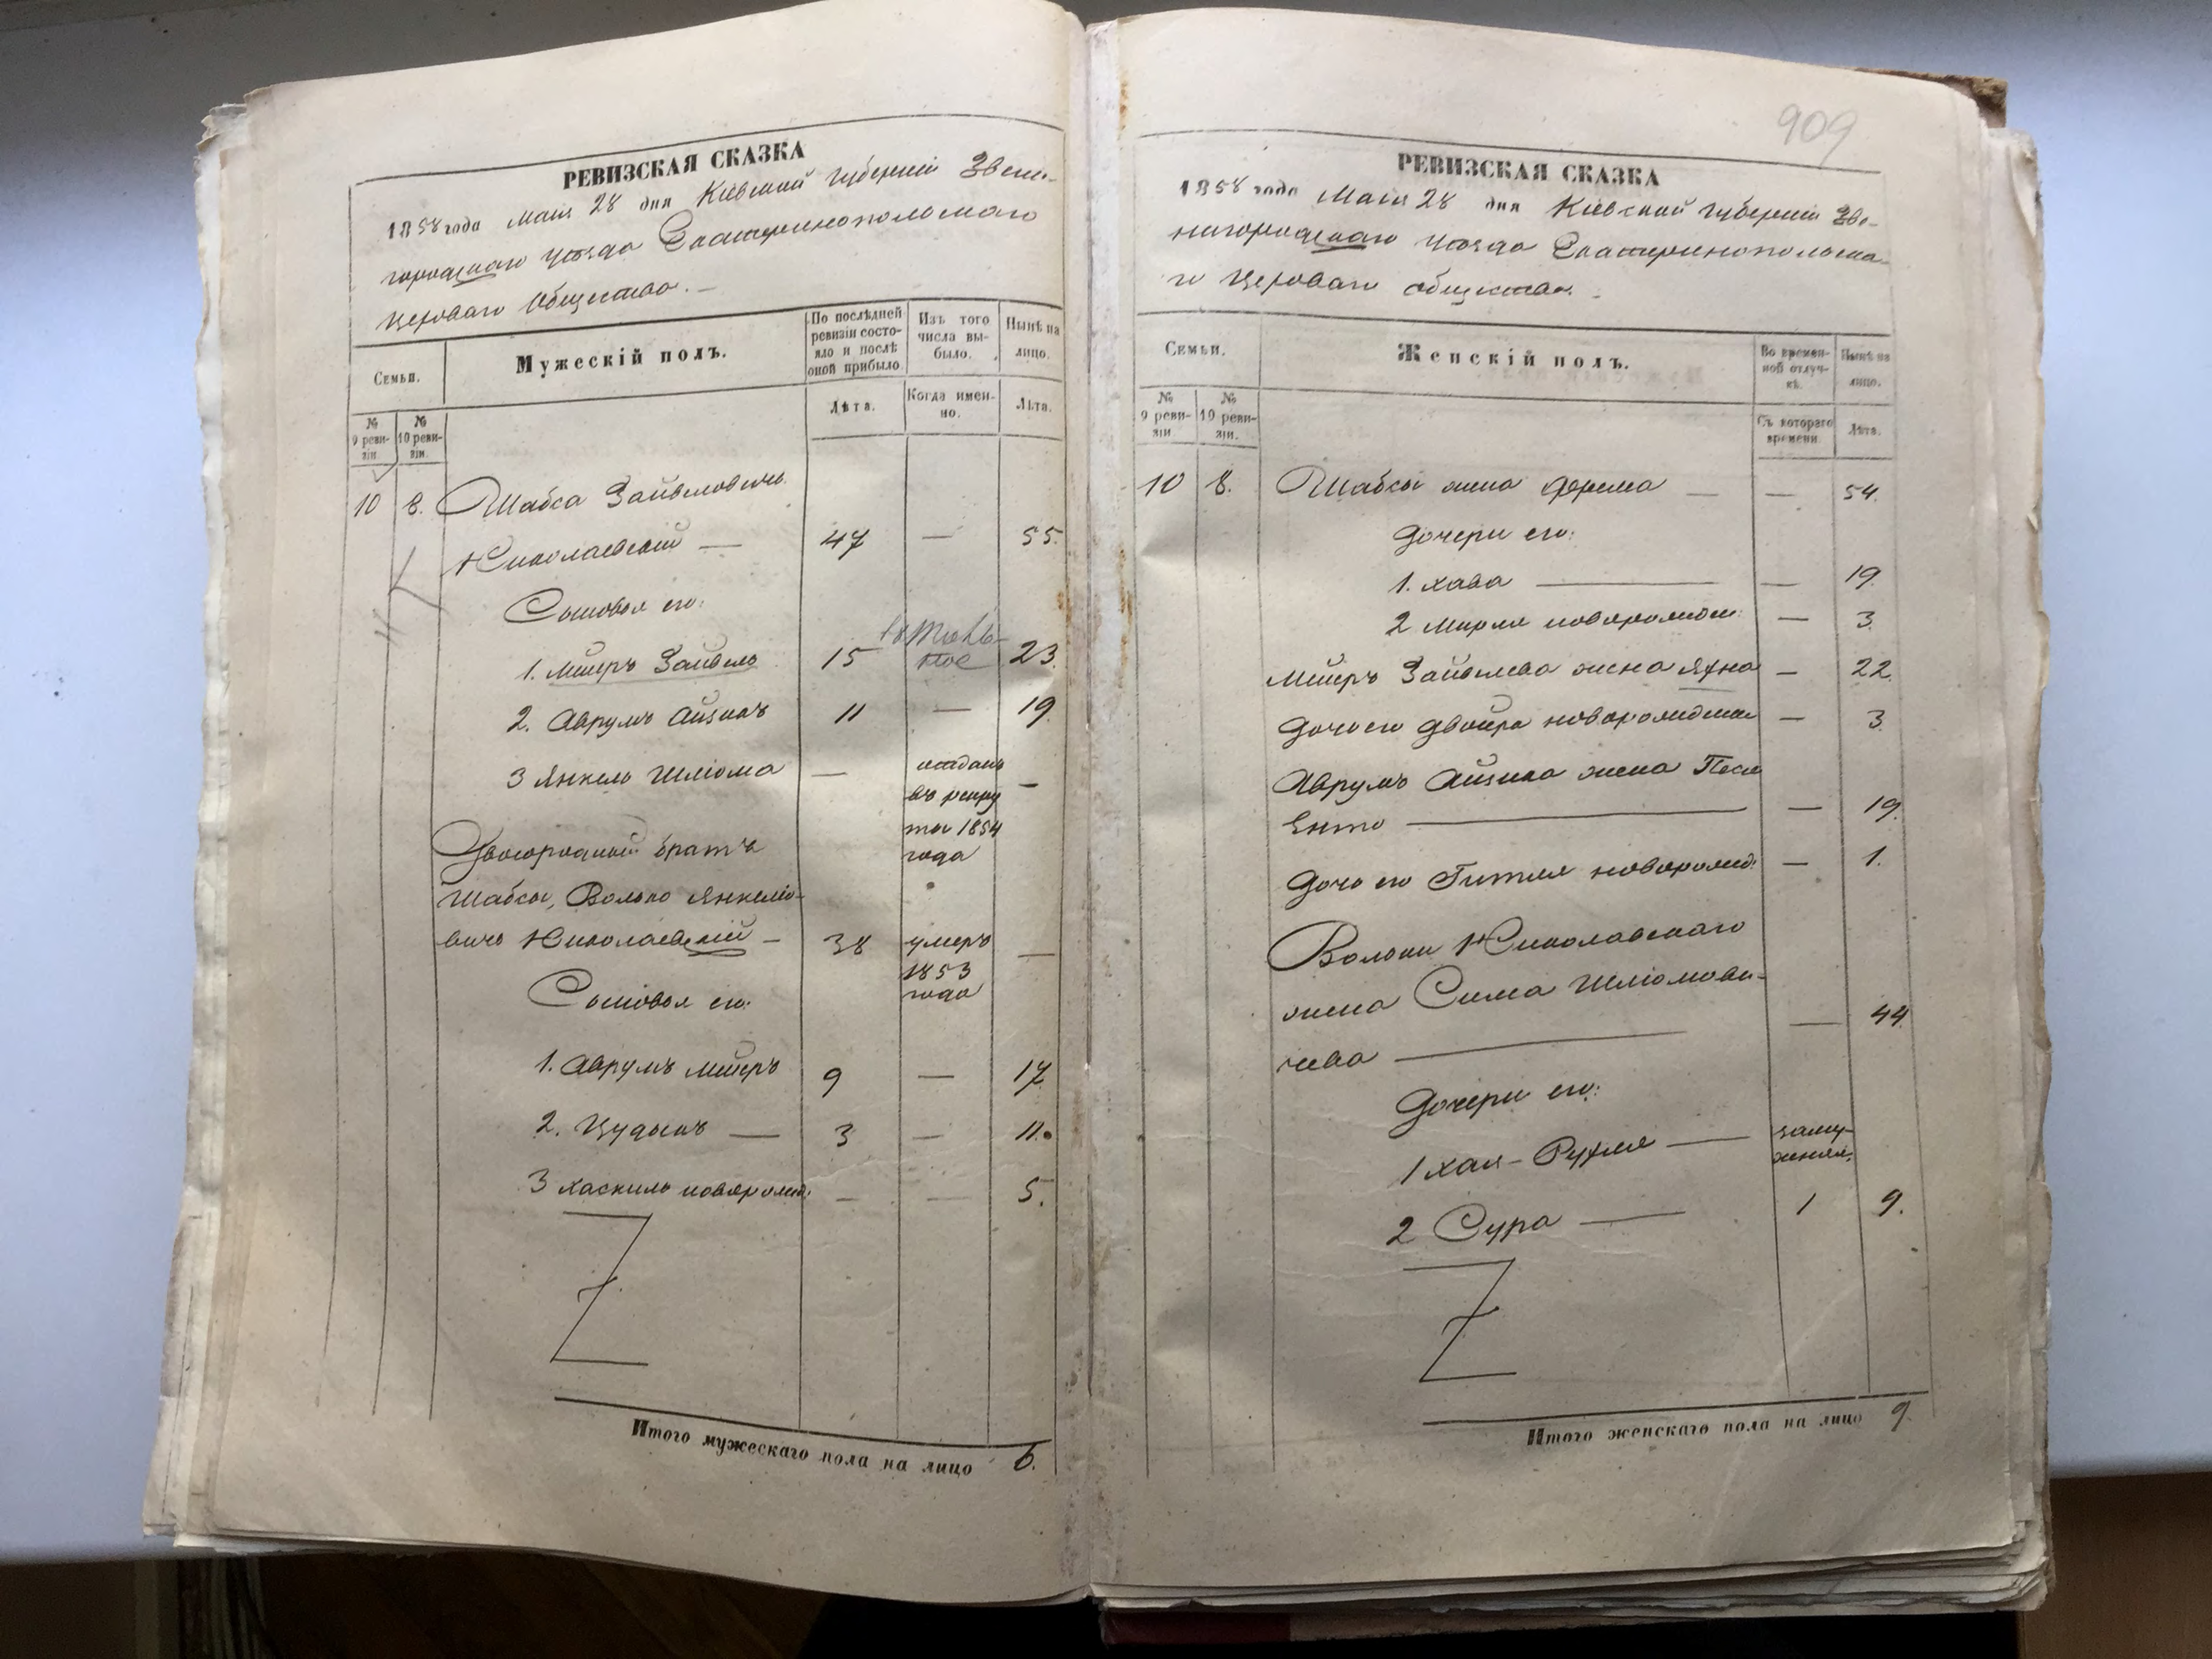 РЕВИЗСКАЯ СКАЗКА
1858 года Маія 28 дня Кіевской Губерніи Звени-
городскаго уѣзда Екатеринопольскаго
Общества. —
Семьи.
Мужескій полъ.
По послѣдней ревизіи состояло и послѣ оной прибыло
Изъ того числа выбыло.
Нынѣ на лицо.
№ 9 ревизіи.
№ 10 ревизіи.
Лѣта.
Когда именно.
Лѣта.
10 8. Шабса Зайвеловичъ
Николаевскій — 47 — 55.
Сыновья его:
1. Мейеръ Зайвель 15 23.
2. Аврумъ Айзикъ 11 — 19
3 Янкель Шліома — отданъ —
въ рекру
ты 1854
года
Двоюродный братъ
Шабсы, Волько Янкеліо-
вичъ Николаевскій — 38 умеръ —
1853
года
Сыновья его:
1. Аврумъ Мейеръ 9 — 17
2. — 3 — 11.
3 Хаскиль новорожд: — — 5.
Итого мужескаго пола на лицо 6.
909
РЕВИЗСКАЯ СКАЗКА
1858 года Маія 28 дня Кіевской Губерніи Зве-
нигородскаго уѣзда Екатеринопольска-
го общества.
Семьи.
Женскій полъ.
Во временной отлучкѣ.
Нынѣ на лицо.
№ 9 ревизіи.
№ 10 ревизіи.
Съ котораго времени.
Лѣта.
10 8. Шабсы жена Фрейма — — 54.
Дочери его:
1. Хава — — 19.
2 Мирля новорожден: — 3.
Мейеръ Зайвеля жена Яхна — 22.
Дочь его Двойра новорожденная — 3.
Аврумъ Айзика жена Песя
Ента — — 19.
Дочь его Гитля новорожд: — 1.
Вольки Николаевскаго
жена Сима Шліомови-
чева — — 44.
Дочери его:
1 Хая-Рухля — заму-
жняя.
2 Сура — 1 9.
Итого женскаго пола на лицо 9.